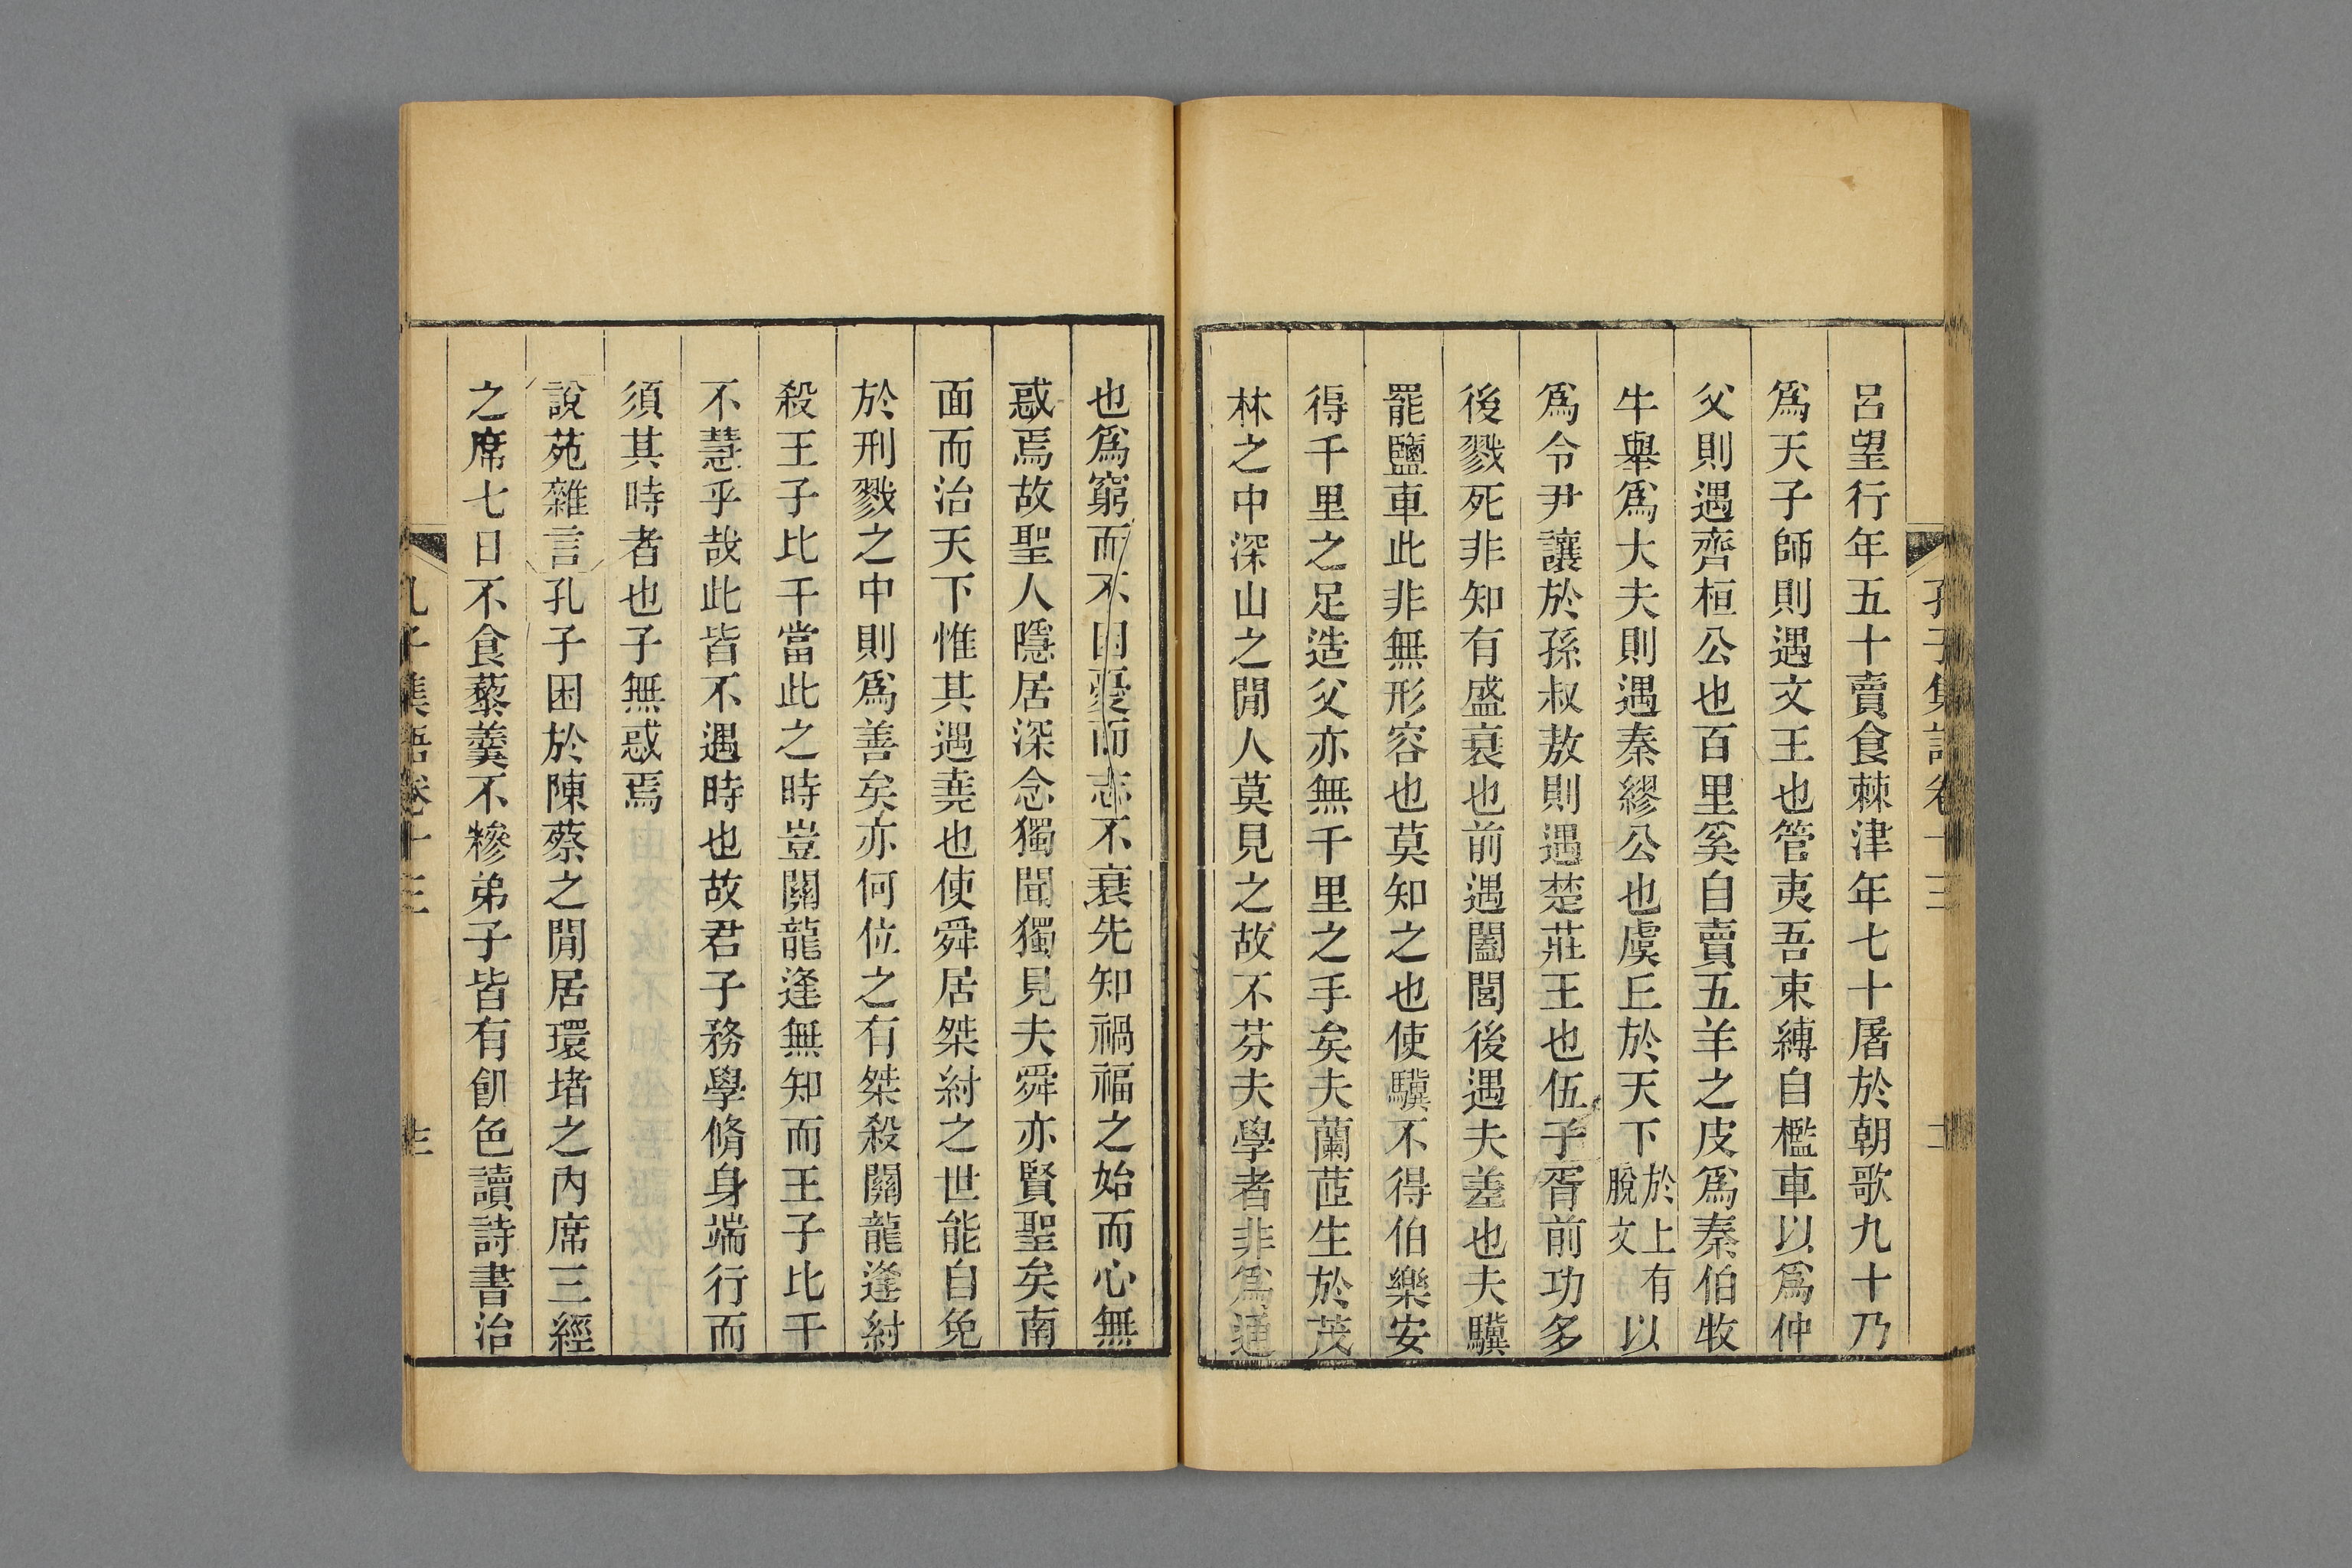 孔子集語卷十三
呂望行年五十賣食棘津年七十屠於朝歌九十乃
爲天子師則遇文王也管夷吾束縛自檻車以爲仲
父則遇齊桓公也百里奚自賣五羊之皮爲秦伯牧
牛舉爲大夫則遇秦繆公也虞丘於天下於上有脫文以
爲令尹讓於孫叔敖則遇楚莊王也伍子胥前功多
後戮死非知有盛衰也前遇闔閭後遇夫差也夫驥
罷鹽車此非無形容也莫知之也使驥不得伯樂安
得千里之足造父亦無千里之手矣夫蘭茝生於茂
林之中深山之閒人莫見之故不芬夫學者非爲通
也爲窮而不困憂而志不衰先知禍福之始而心無
惑焉故聖人隱居深念獨聞獨見夫舜亦賢聖矣南
面而治天下惟其遇堯也使舜居桀紂之世能自免
於刑戮之中則爲善矣亦何位之有桀殺關龍逢紂
殺王子比干當此之時豈關龍逢無知而王子比干
不慧乎哉此皆不遇時也故君子務學脩身端行而
須其時者也子無惑焉
說苑雜言孔子困於陳蔡之閒居環堵之內席三經
之席七日不食藜羹不糝弟子皆有飢色讀詩書治
孔子集語卷十三